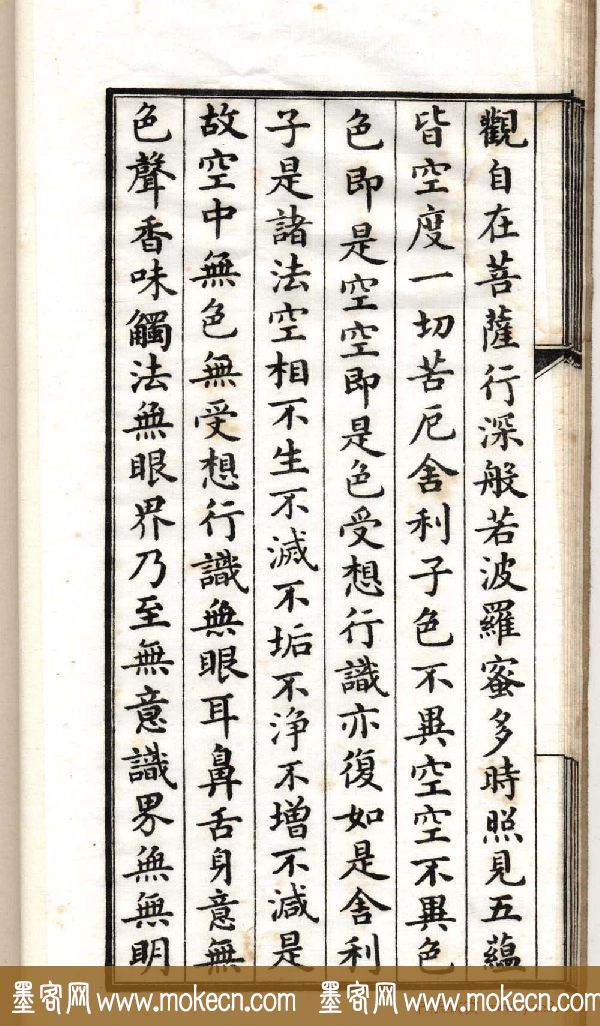 觀自在菩薩行深般若波羅蜜多時照見五蘊
皆空度一切苦厄舍利子色不異空空不異色
色即是空空即是色受想行識亦復如是舍利
子是諸法空相不生不滅不垢不浄不增不減是
故空中無色無受想行識無眼耳鼻舌身意無
色聲香味觸法無眼界乃至無意識界無無明
墨客网 www.mokecn.com 墨客网 www.mokecn.com